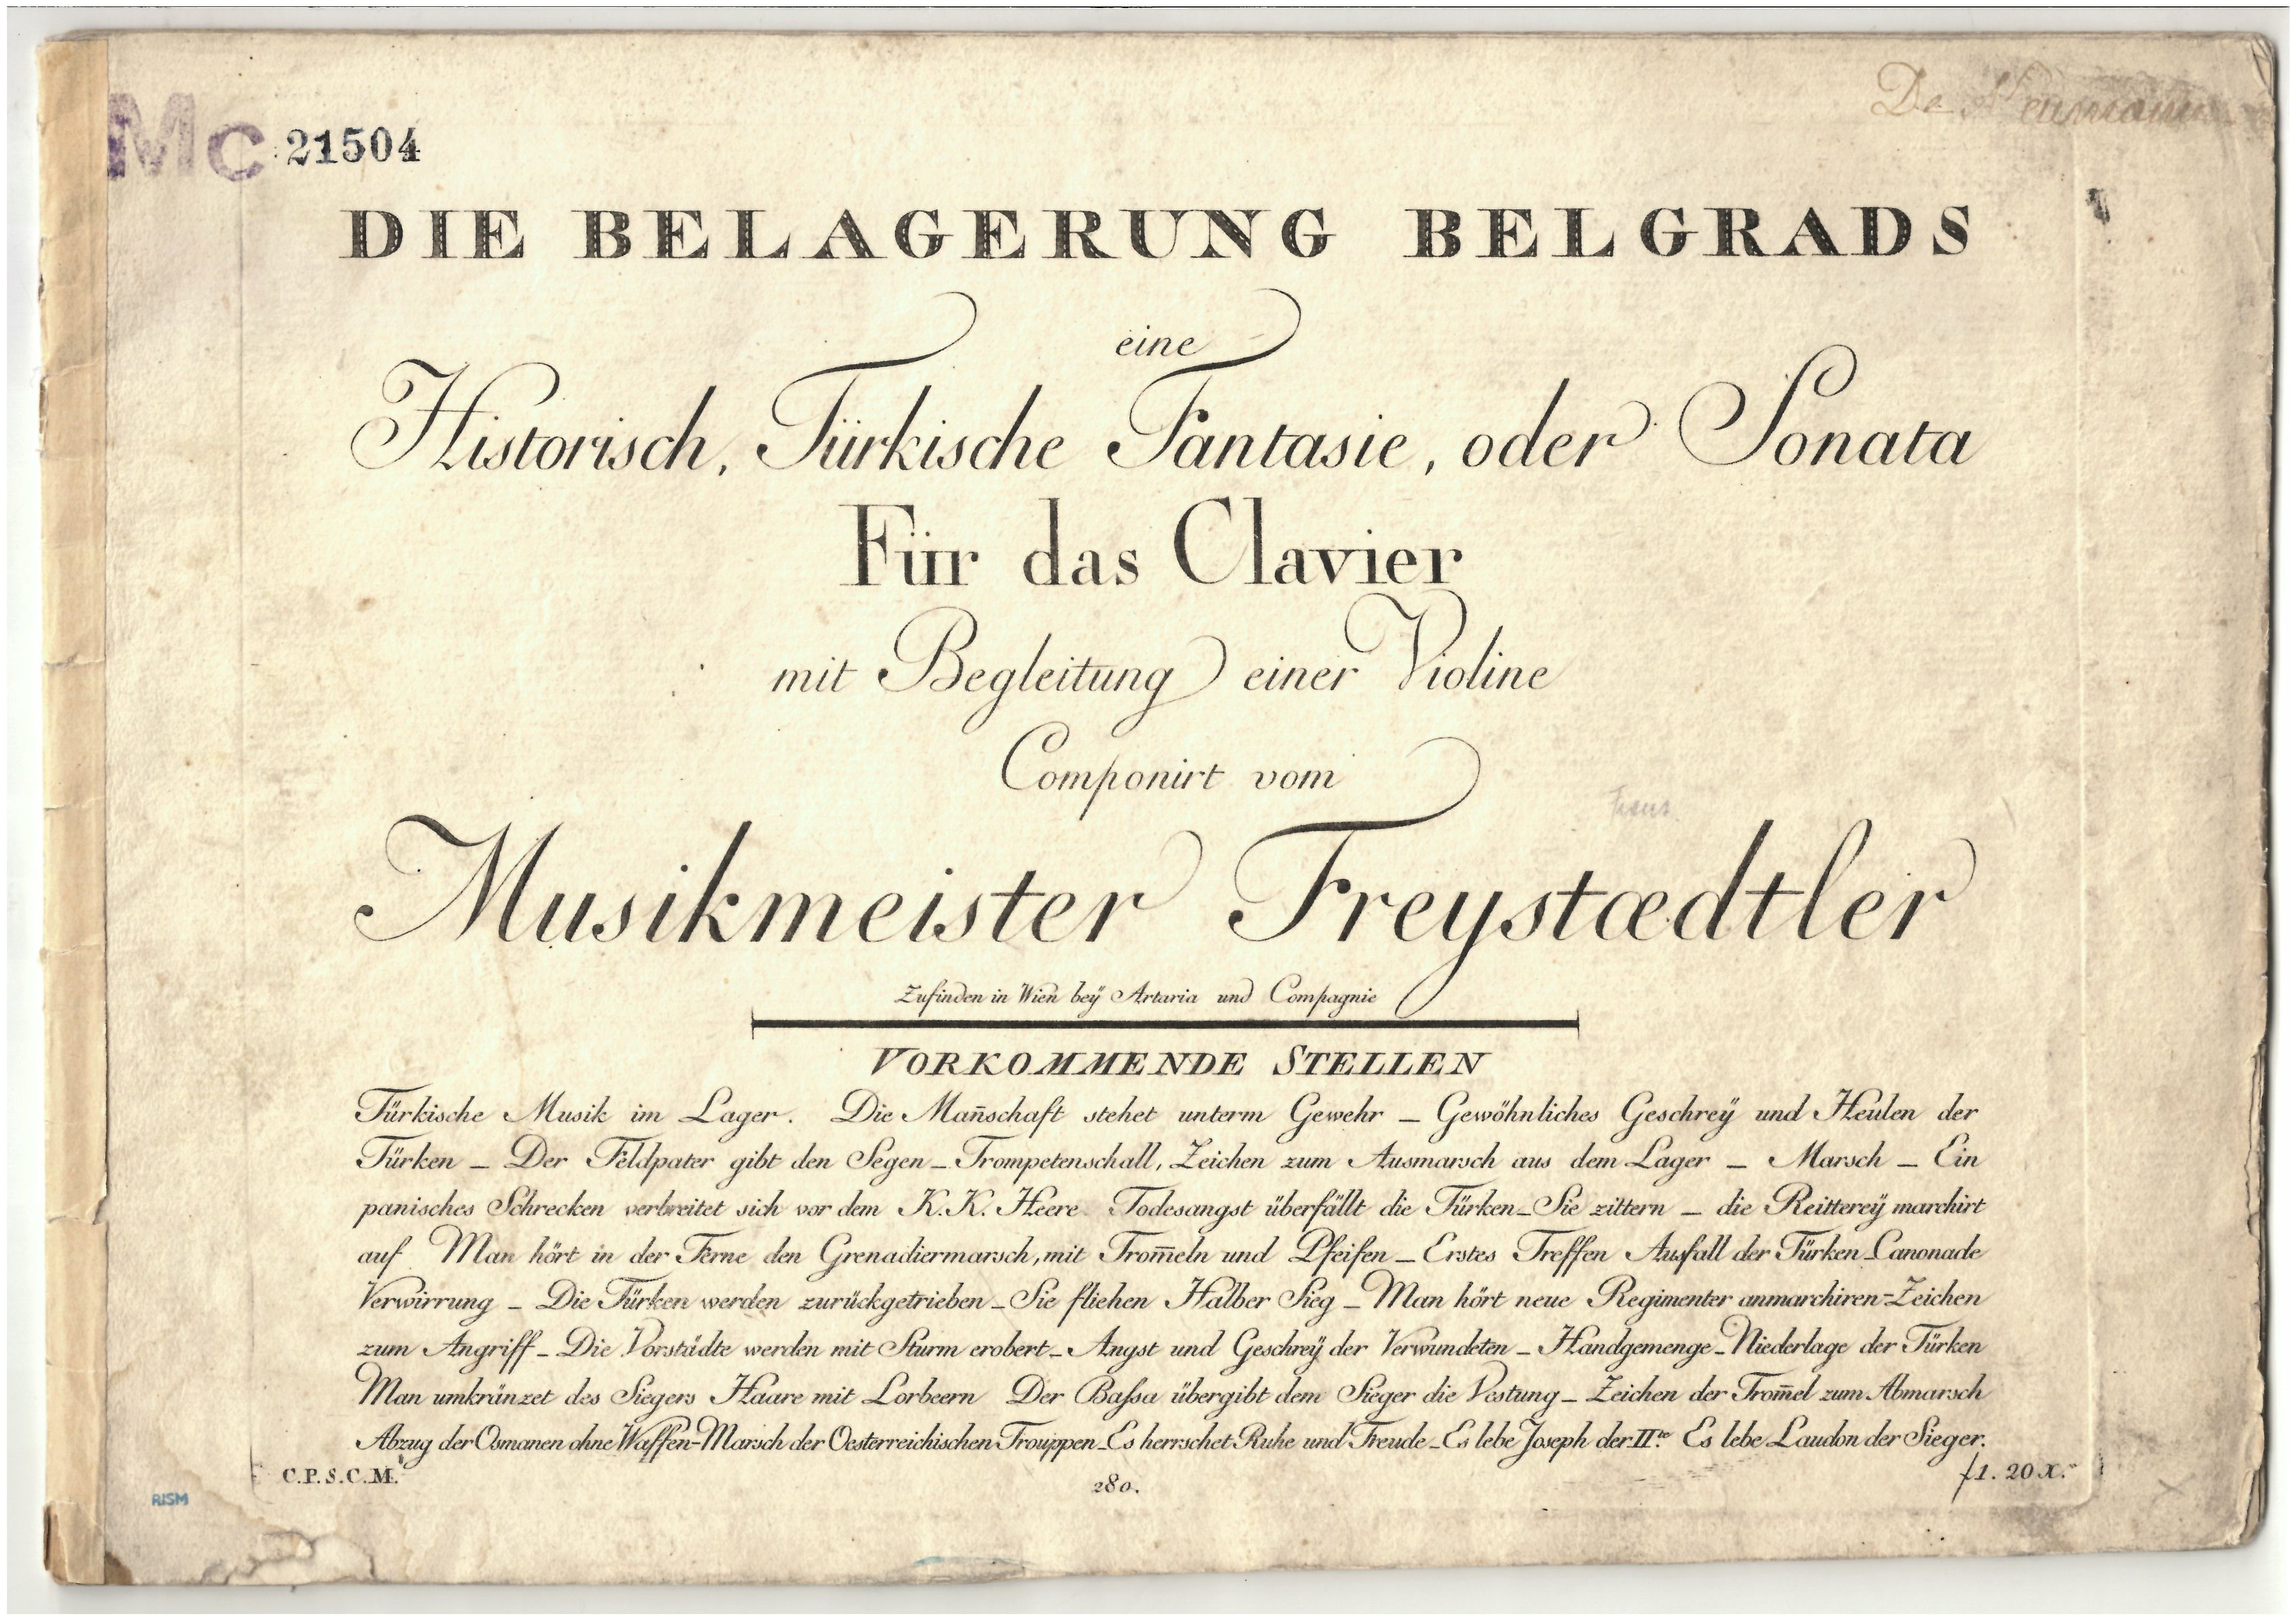 Mc 21504
DIE BELAGERUNG BELGRADS
eine
Historisch, Türkische Fantasie, oder Sonata
Für das Clavier
mit Begleitung einer Violine
Componirt vom
Musikmeister Freystædtler
Zufinden in Wien beÿ Artaria und Compagnie
VORKOMMENDE STELLEN
Türkische Musik im Lager. Die Man̄schaft stehet unterm Gewehr _ Gewöhnliches Geschreÿ und Heulen der
Türken _ Der Feldpater gibt den Segen _ Trompetenschall, Zeichen zum Ausmarsch aus dem Lager _ Marsch _ Ein
panisches Schrecken verbreitet sich vor dem K.K. Heere Todesangst überfällt die Türken _ Sie zittern _ die Reittereÿ marchirt
auf Man hört in der Ferne den Grenadiermarsch, mit Trom̄eln und Pfeifen _ Erstes Treffen Ausfall der Türken _ Canonade
Verwirrung _ Die Türken werden zurückgetrieben _ Sie fliehen Halber Sieg _ Man hört neue Regimenter anmarchiren = Zeichen
zum Angriff _ Die Vorstädte werden mit Sturm erobert _ Angst und Geschreÿ der Verwundeten _ Handgemenge _ Niederlage der Türken
Man umkränzet des Siegers Haare mit Lorbeern Der Baſsa übergibt dem Sieger die Vestung _ Zeichen der Trom̄el zum Abmarsch
Abzug der Osmanen ohne Waffen _ Marsch der Oesterreichischen Trouppen _ Es herrschet Ruhe und Freude _ Es lebe Joseph der II.te Es lebe Laudon der Sieger.
C.P.S.C.M.
280.
f1. 20 X.
RISM